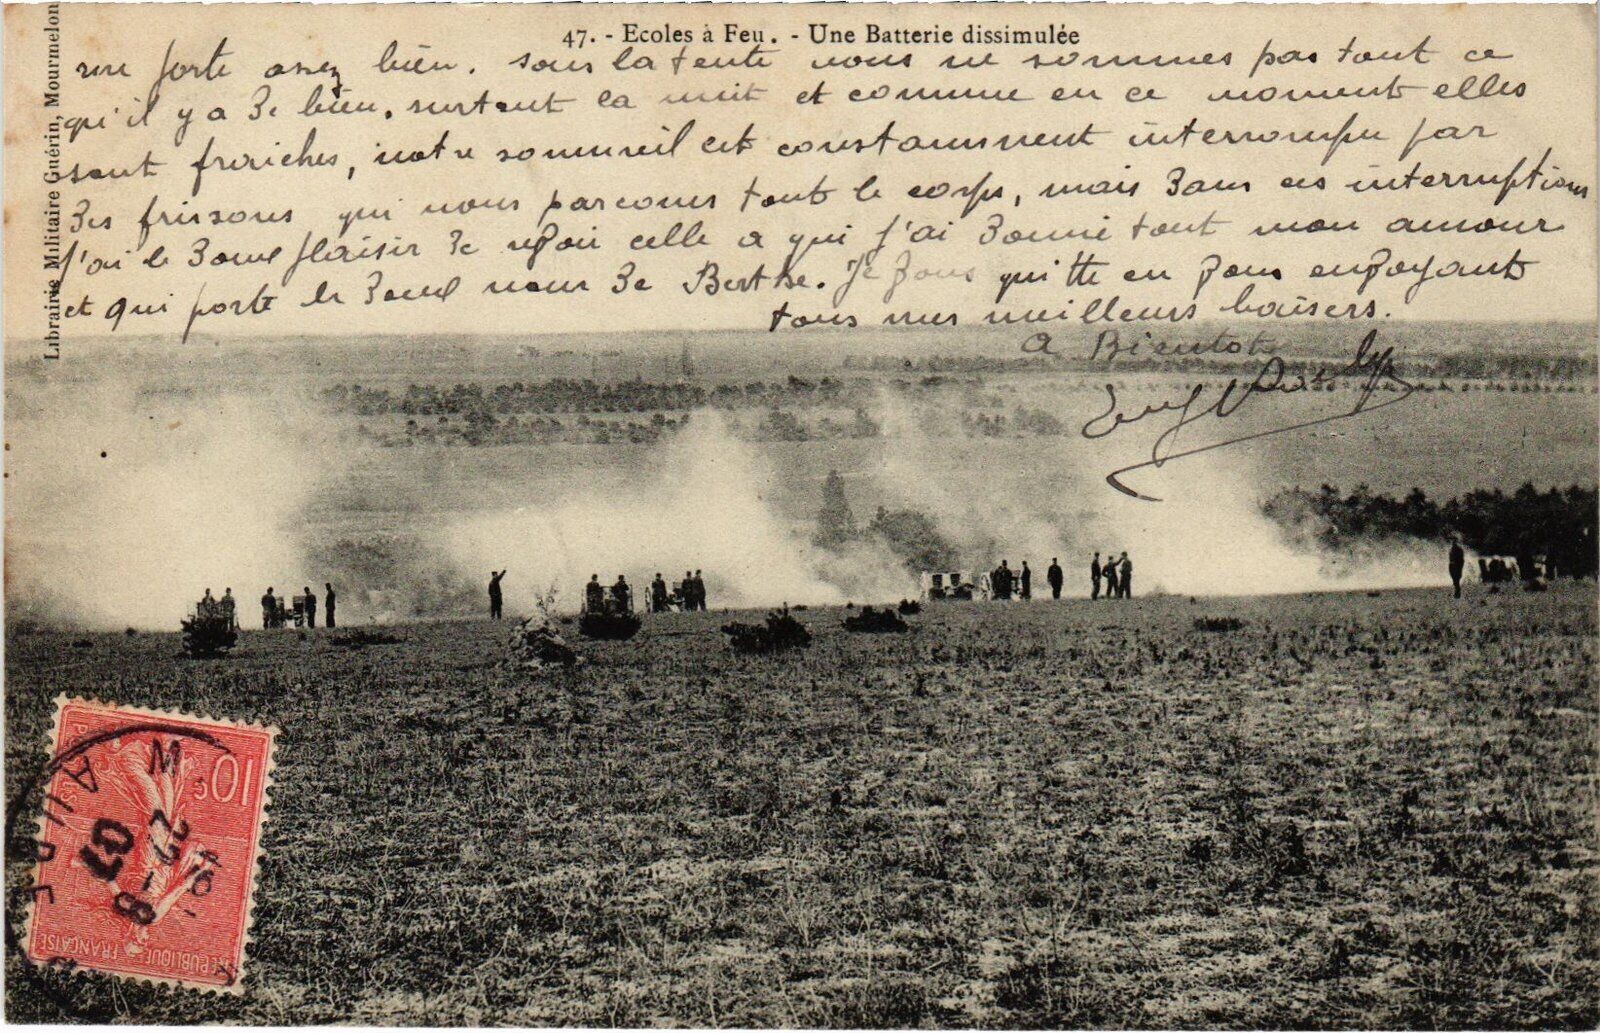 47. - Ecoles à Feu. - Une Batterie dissimulée
me porte assez bien. sous la tente nous ne sommes pas tout ce
qu'il y a de bien, surtout la nuit et comme en ce moment elles
sont fraiches, notre sommeil est constamment interrompu par
des frissons qui nous parcours tout le corps, mais dans ces interruptions
j'ai le doux plaisir de revoir celle a qui j'ai donné tout mon amour
et qui porte le doux nom de Berthe. Je vous quitte en vous envoyant
tous mes meilleurs baisers.
A Bientot
Librairie Militaire Guérin, Mourmelon
10c
RÉPUBLIQUE FRANÇAISE
AUBE
22-8
07